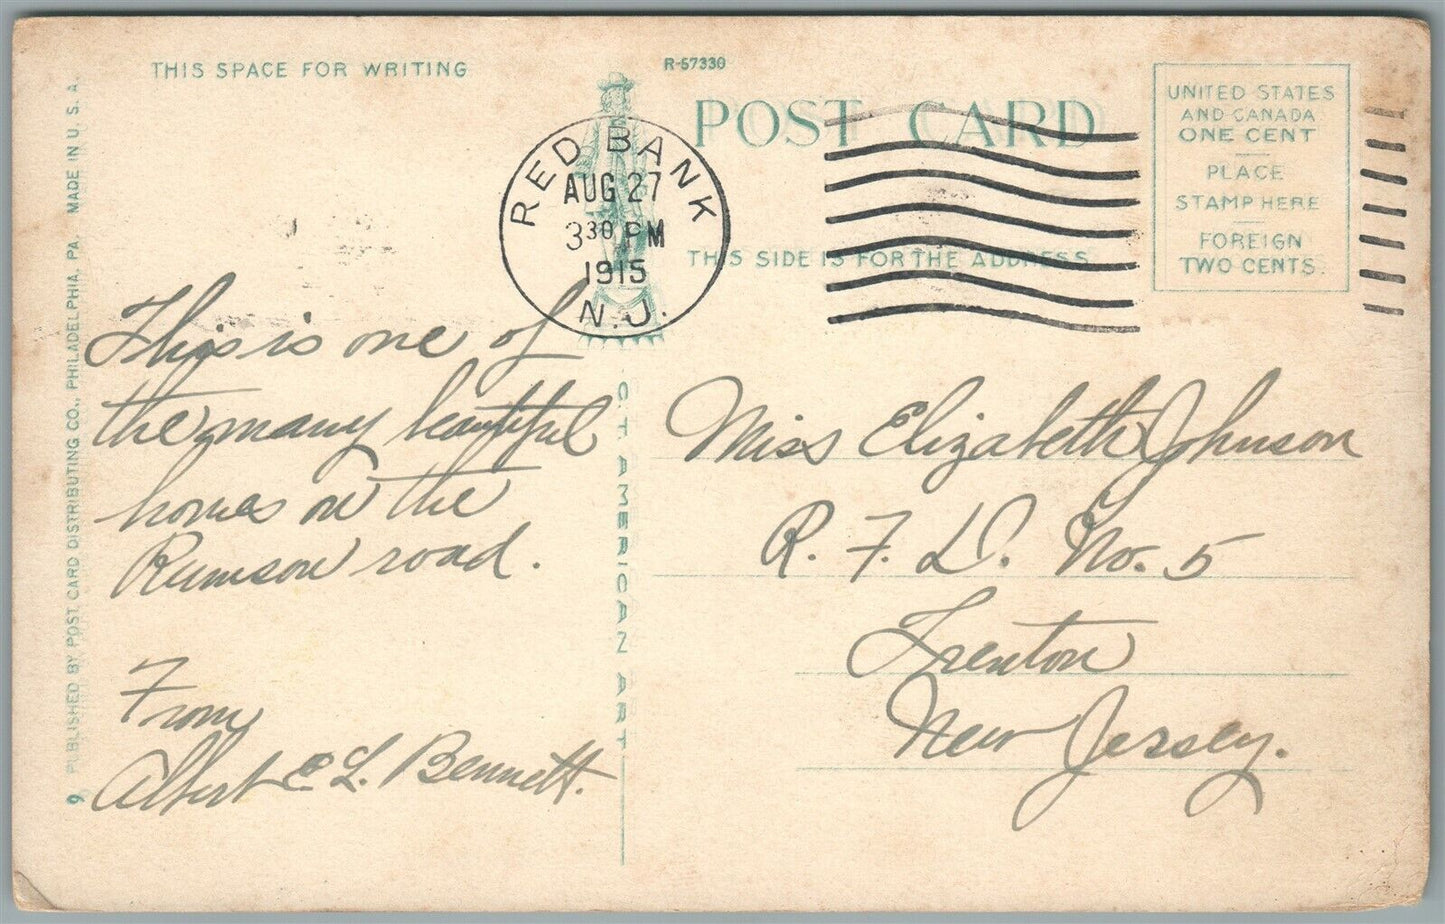 THIS SPACE FOR WRITING
R-57330
POST CARD
UNITED STATES
AND CANADA
ONE CENT
PLACE
STAMP HERE
FOREIGN
TWO CENTS.
RED BANK
AUG 27
3 30 PM
1915
N.J.
THIS SIDE IS FOR THE ADDRESS
This is one of
the many beautiful
homes on the
Rumson road.
From
Albert L. Bennett.
Miss Elizabeth Johnson
R. F. D. No. 5
Trenton
New Jersey.
C.T. AMERICAN ART
9 PUBLISHED BY POST CARD DISTRIBUTING CO., PHILADELPHIA, PA. MADE IN U. S. A.